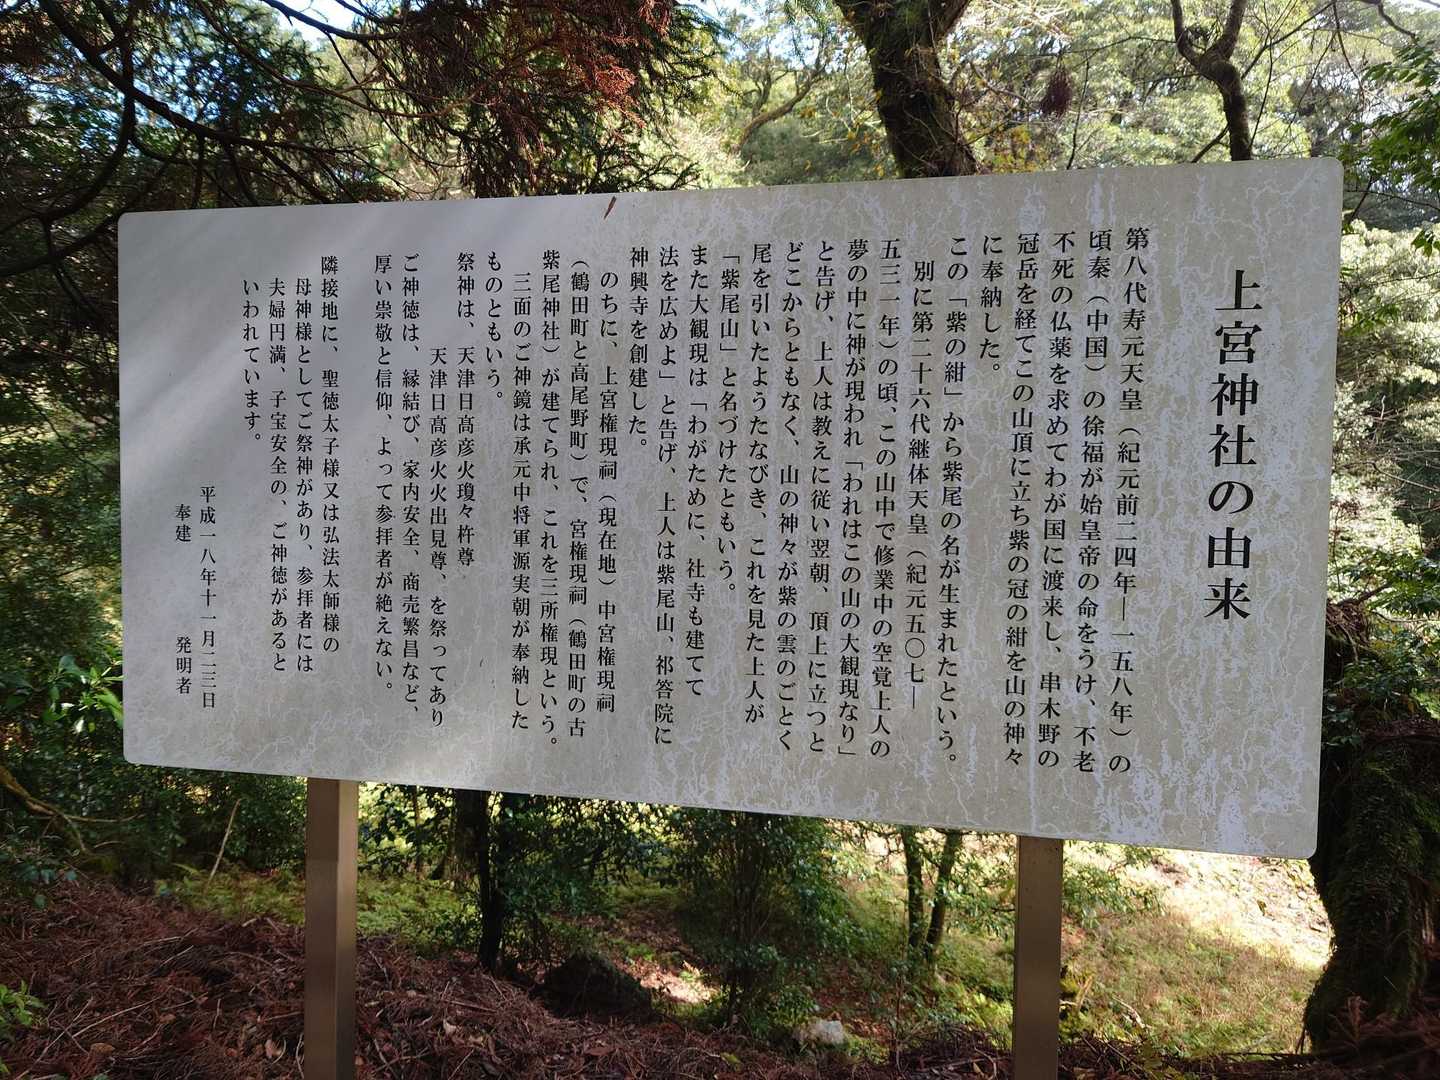 上宮神社の由来
第八代寿元天皇（紀元前二四年―一五八年）の
頃秦（中国）の徐福が始皇帝の命をうけ、不老
不死の仏薬を求めてわが国に渡来し、串木野の
冠岳を経てこの山頂に立ち紫の冠の紺を山の神々
に奉納した。
この「紫の紺」から紫尾の名が生まれたという。
別に第二十六代継体天皇（紀元五〇七―
五三一年）の頃、この山中で修業中の空覚上人の
夢の中に神が現われ「われはこの山の大観現なり」
と告げ、上人は教えに従い翌朝、頂上に立つと
どこからともなく、山の神々が紫の雲のごとく
尾を引いたようたなびき、これを見た上人が
「紫尾山」と名づけたともいう。
また大観現は「わがために、社寺も建てて
法を広めよ」と告げ、上人は紫尾山、祁答院に
神興寺を創建した。
のちに、上宮権現祠（現在地）中宮権現祠
（鶴田町と高尾野町）で、宮権現祠（鶴田町の古
紫尾神社）が建てられ、これを三所権現という。
三面のご神鏡は承元中将軍源実朝が奉納した
ものともいう。
祭神は、天津日高彦火瓊々杵尊
天津日高彦火火出見尊、を祭ってあり
ご神徳は、縁結び、家内安全、商売繁昌など、
厚い崇敬と信仰、よって参拝者が絶えない。
隣接地に、聖徳太子様又は弘法太師様の
母神様としてご祭神があり、参拝者には
夫婦円満、子宝安全の、ご神徳があると
いわれています。
平成一八年十一月二三日
奉建　発明者